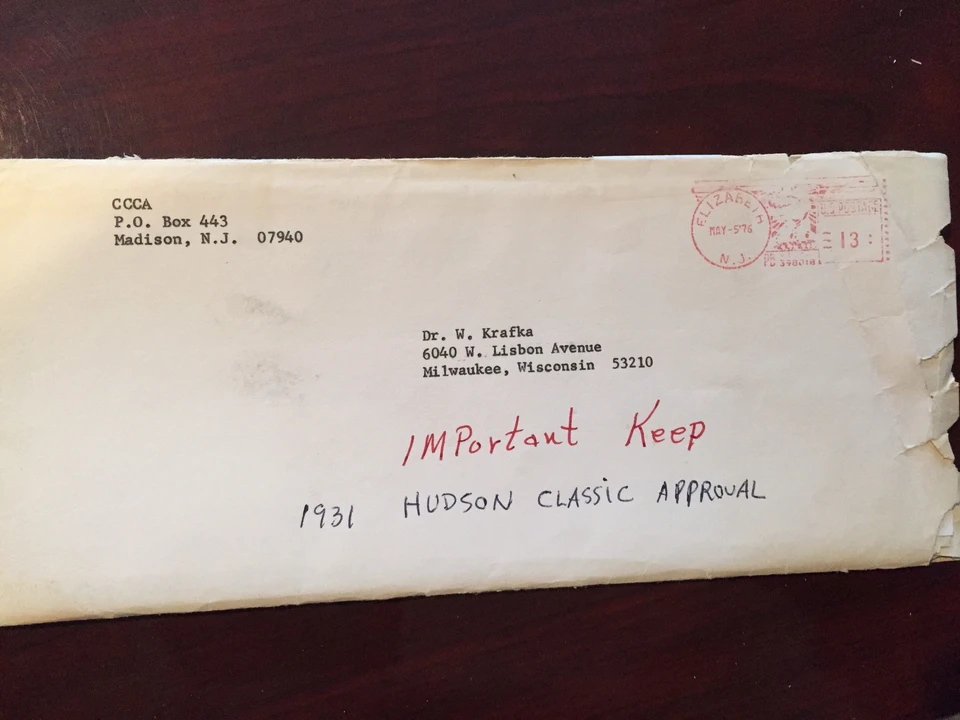 CCCA
P.O. Box 443
Madison, N.J. 07940
ELIZABETH
MAY -5'76
N.J.
U.S. POSTAGE
13
Dr. W. Krafka
6040 W. Lisbon Avenue
Milwaukee, Wisconsin 53210
IMPortant Keep
1931 HUDSON CLASSIC APPROVAL